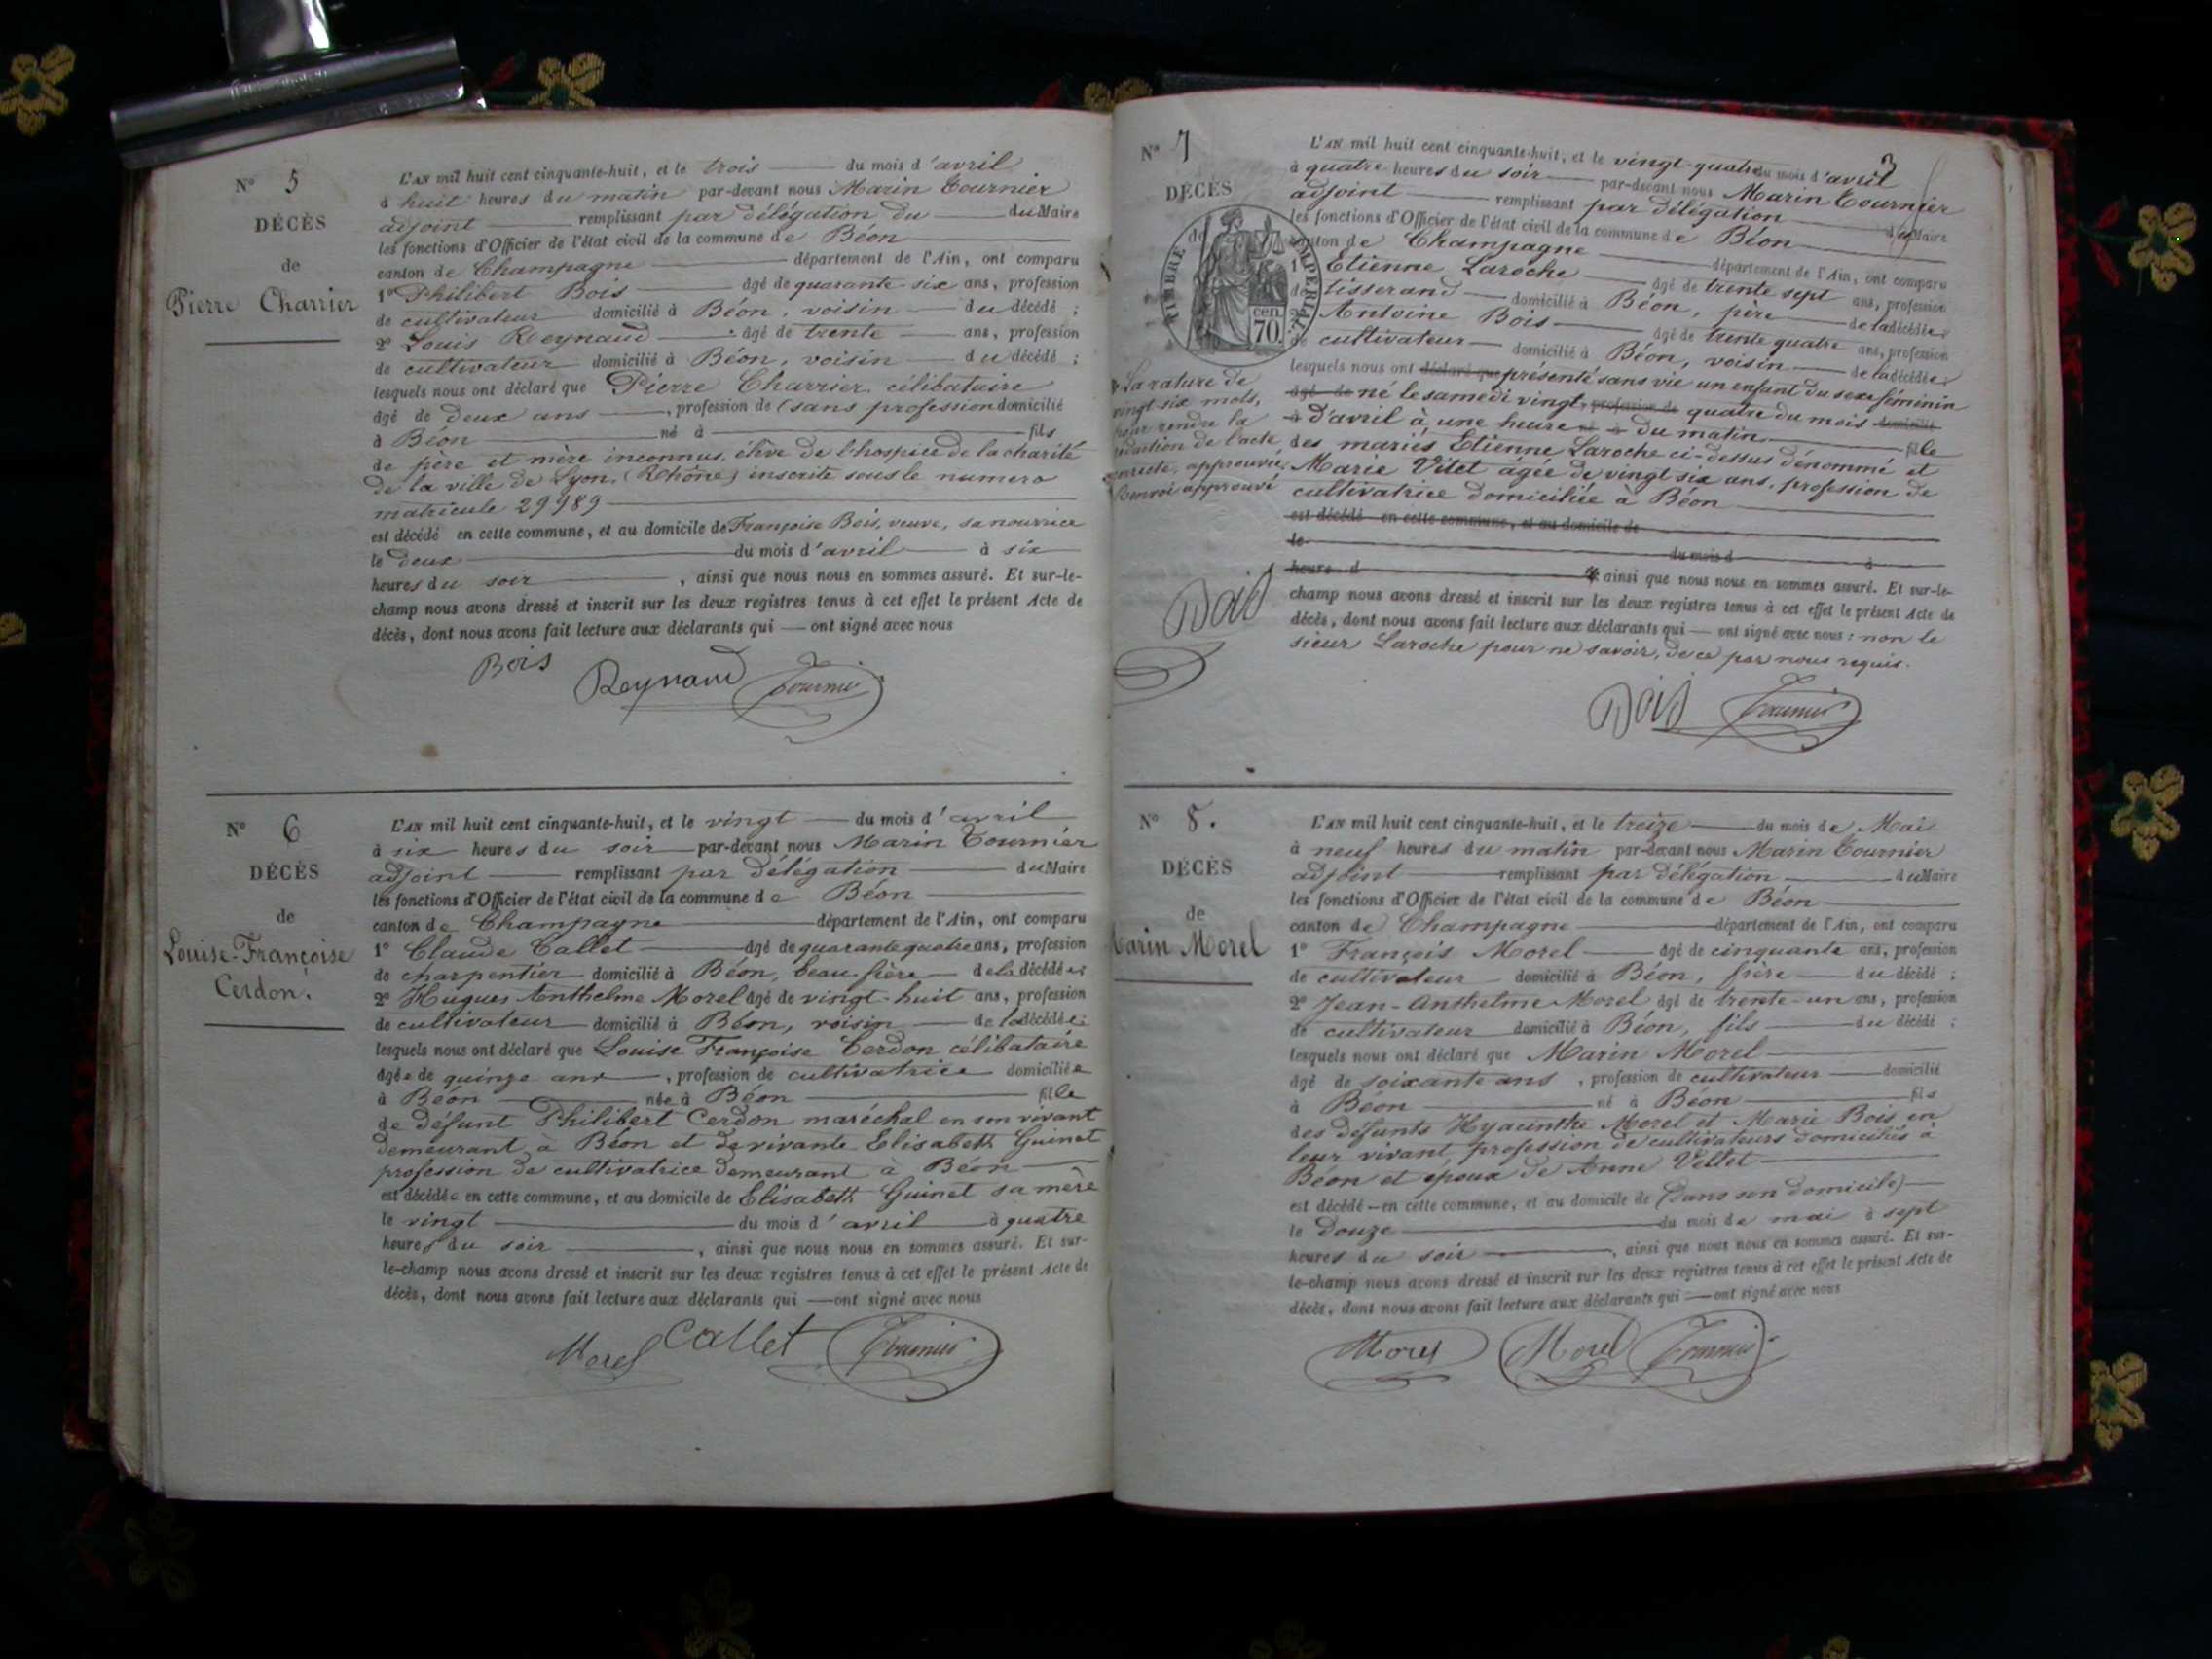 N° 5
DÉCÈS
de
Pierre Charrier
L'AN mil huit cent cinquante-huit, et le trois du mois d'avril
à huit heures du matin par-devant nous Marin Tournier
adjoint remplissant par délégation du du Maire
les fonctions d'Officier de l'état civil de la commune de Béon
canton de Champagne département de l'Ain, ont comparu
1° Philibert Bois âgé de quarante six ans, profession
de cultivateur domicilié à Béon, voisin du décédé ;
2° Louis Reynaud âgé de trente ans, profession
de cultivateur domicilié à Béon, voisin du décédé ;
lesquels nous ont déclaré que Pierre Charrier, célibataire
âgé de deux ans, profession de (sans profession domicilié
à Béon né à fils
de père et mère inconnus, élève de l'hospice de la charité
de la ville de Lyon, (Rhône) inscrite sous le numero
matricule 29989
est décédé en cette commune, et au domicile de Françoise Bois, veuve, sa nourrice
le deux du mois d'avril à six
heures du soir, ainsi que nous nous en sommes assuré. Et sur-le-
champ nous avons dressé et inscrit sur les deux registres tenus à cet effet le présent Acte de
décès, dont nous avons fait lecture aux déclarants qui — ont signé avec nous
Bois Reynaud Tournier
N° 6
DÉCÈS
de
Louise-Françoise
Cerdon.
L'AN mil huit cent cinquante-huit, et le vingt du mois d'avril
à six heures du soir par-devant nous Marin Tournier
adjoint remplissant par délégation du Maire
les fonctions d'Officier de l'état civil de la commune de Béon
canton de Champagne département de l'Ain, ont comparu
1° Claude Callet âgé de quarante quatre ans, profession
de charpentier domicilié à Béon, beau-frère de la décédée ;
2° Hugues Anthelme Morel âgé de vingt-huit ans, profession
de cultivateur domicilié à Béon, voisin de la décédée ;
lesquels nous ont déclaré que Louise Françoise Cerdon célibataire
âgée de quinze ans, profession de cultivatrice domiciliée
à Béon née à Béon fille
de défunt Philibert Cerdon maréchal en son vivant
demeurant à Béon et de vivante Elisabeth Guinet
profession de cultivatrice demeurant à Béon
est décédée en cette commune, et au domicile de Elisabeth Guinet sa mère
le vingt du mois d'avril à quatre
heures du soir, ainsi que nous nous en sommes assuré. Et sur-
le-champ nous avons dressé et inscrit sur les deux registres tenus à cet effet le présent Acte de
décès, dont nous avons fait lecture aux déclarants qui — ont signé avec nous
Morel Callet Tournier
3
N° 7
DÉCÈS
de
TIMBRE IMPERIAL
cen. 70.
La rature de
vingt six mots,
pour rendre la
rédaction de l'acte
correcte, approuvée.
Renvoi approuvé
Bois
L'AN mil huit cent cinquante-huit, et le vingt-quatre du mois d'avril
à quatre heures du soir par-devant nous Marin Tournier
adjoint remplissant par délégation du Maire
les fonctions d'Officier de l'état civil de la commune de Béon
canton de Champagne département de l'Ain, ont comparu
1° Etienne Laroche âgé de trente sept ans, profession
de tisserand domicilié à Béon, père de la décédée ;
2° Antoine Bois âgé de trente quatre ans, profession
de cultivateur domicilié à Béon, voisin de la décédée ;
lesquels nous ont déclaré que présenté sans vie un enfant du sexe féminin
âgé de né le samedi vingt, profession de quatre du mois domicilié
à d'avril à une heure né à du matin fille
des mariés Etienne Laroche ci-dessus dénommé et
Marie Vitet agée de vingt six ans, profession de
cultivatrice domiciliée à Béon
est décédé en cette commune, et au domicile de
le du mois d à
heure d ainsi que nous nous en sommes assuré. Et sur-le-
champ nous avons dressé et inscrit sur les deux registres tenus à cet effet le présent Acte de
décès, dont nous avons fait lecture aux déclarants qui — ont signé avec nous : non le
sieur Laroche pour ne savoir, de ce par nous requis.
Bois Tournier
N° 8.
DÉCÈS
de
Marin Morel
L'AN mil huit cent cinquante-huit, et le treize du mois de Mai
à neuf heures du matin par-devant nous Marin Tournier
adjoint remplissant par délégation du Maire
les fonctions d'Officier de l'état civil de la commune de Béon
canton de Champagne département de l'Ain, ont comparu
1° François Morel âgé de cinquante ans, profession
de cultivateur domicilié à Béon, frère du décédé ;
2° Jean-Anthelme Morel âgé de trente-un ans, profession
de cultivateur domicilié à Béon, fils du décédé ;
lesquels nous ont déclaré que Marin Morel
âgé de soixante ans, profession de cultivateur domicilié
à Béon né à Béon fils
des défunts Hyacinthe Morel et Marie Bois en
leur vivant, profession de cultivateurs domiciliés à
Béon et époux de Anne Vettet
est décédé — en cette commune, et au domicile de (dans son domicile)
le douze du mois de mai à sept
heures du soir, ainsi que nous nous en sommes assuré. Et sur-
le-champ nous avons dressé et inscrit sur les deux registres tenus à cet effet le présent Acte de
décès, dont nous avons fait lecture aux déclarants qui — ont signé avec nous
Morel Morel Tournier